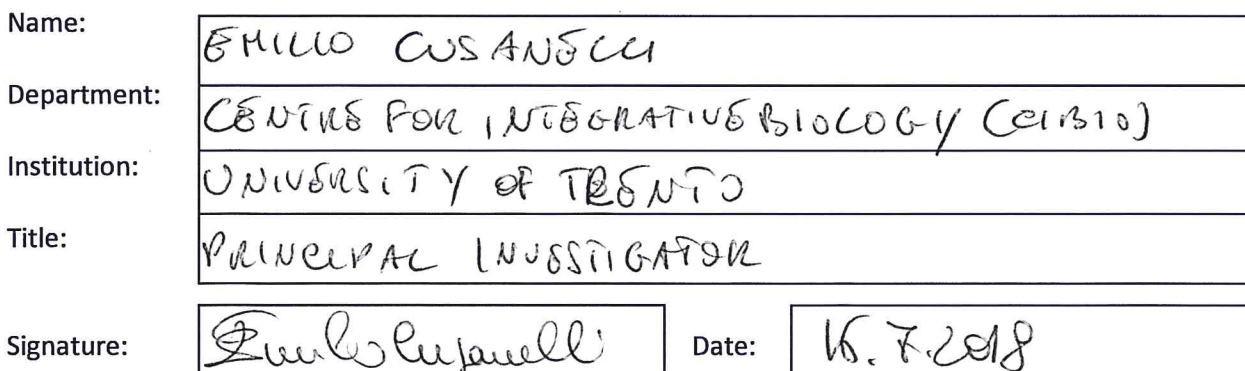 Name: EMILIO CUSANELLI
Department: CENTRE FOR INTEGRATIVE BIOLOGY (CIBIO)
Institution: UNIVERSITY OF TRENTO
Title: PRINCIPAL INVESTIGATOR
Signature: Emilio Cusanelli Date: 16.7.2018